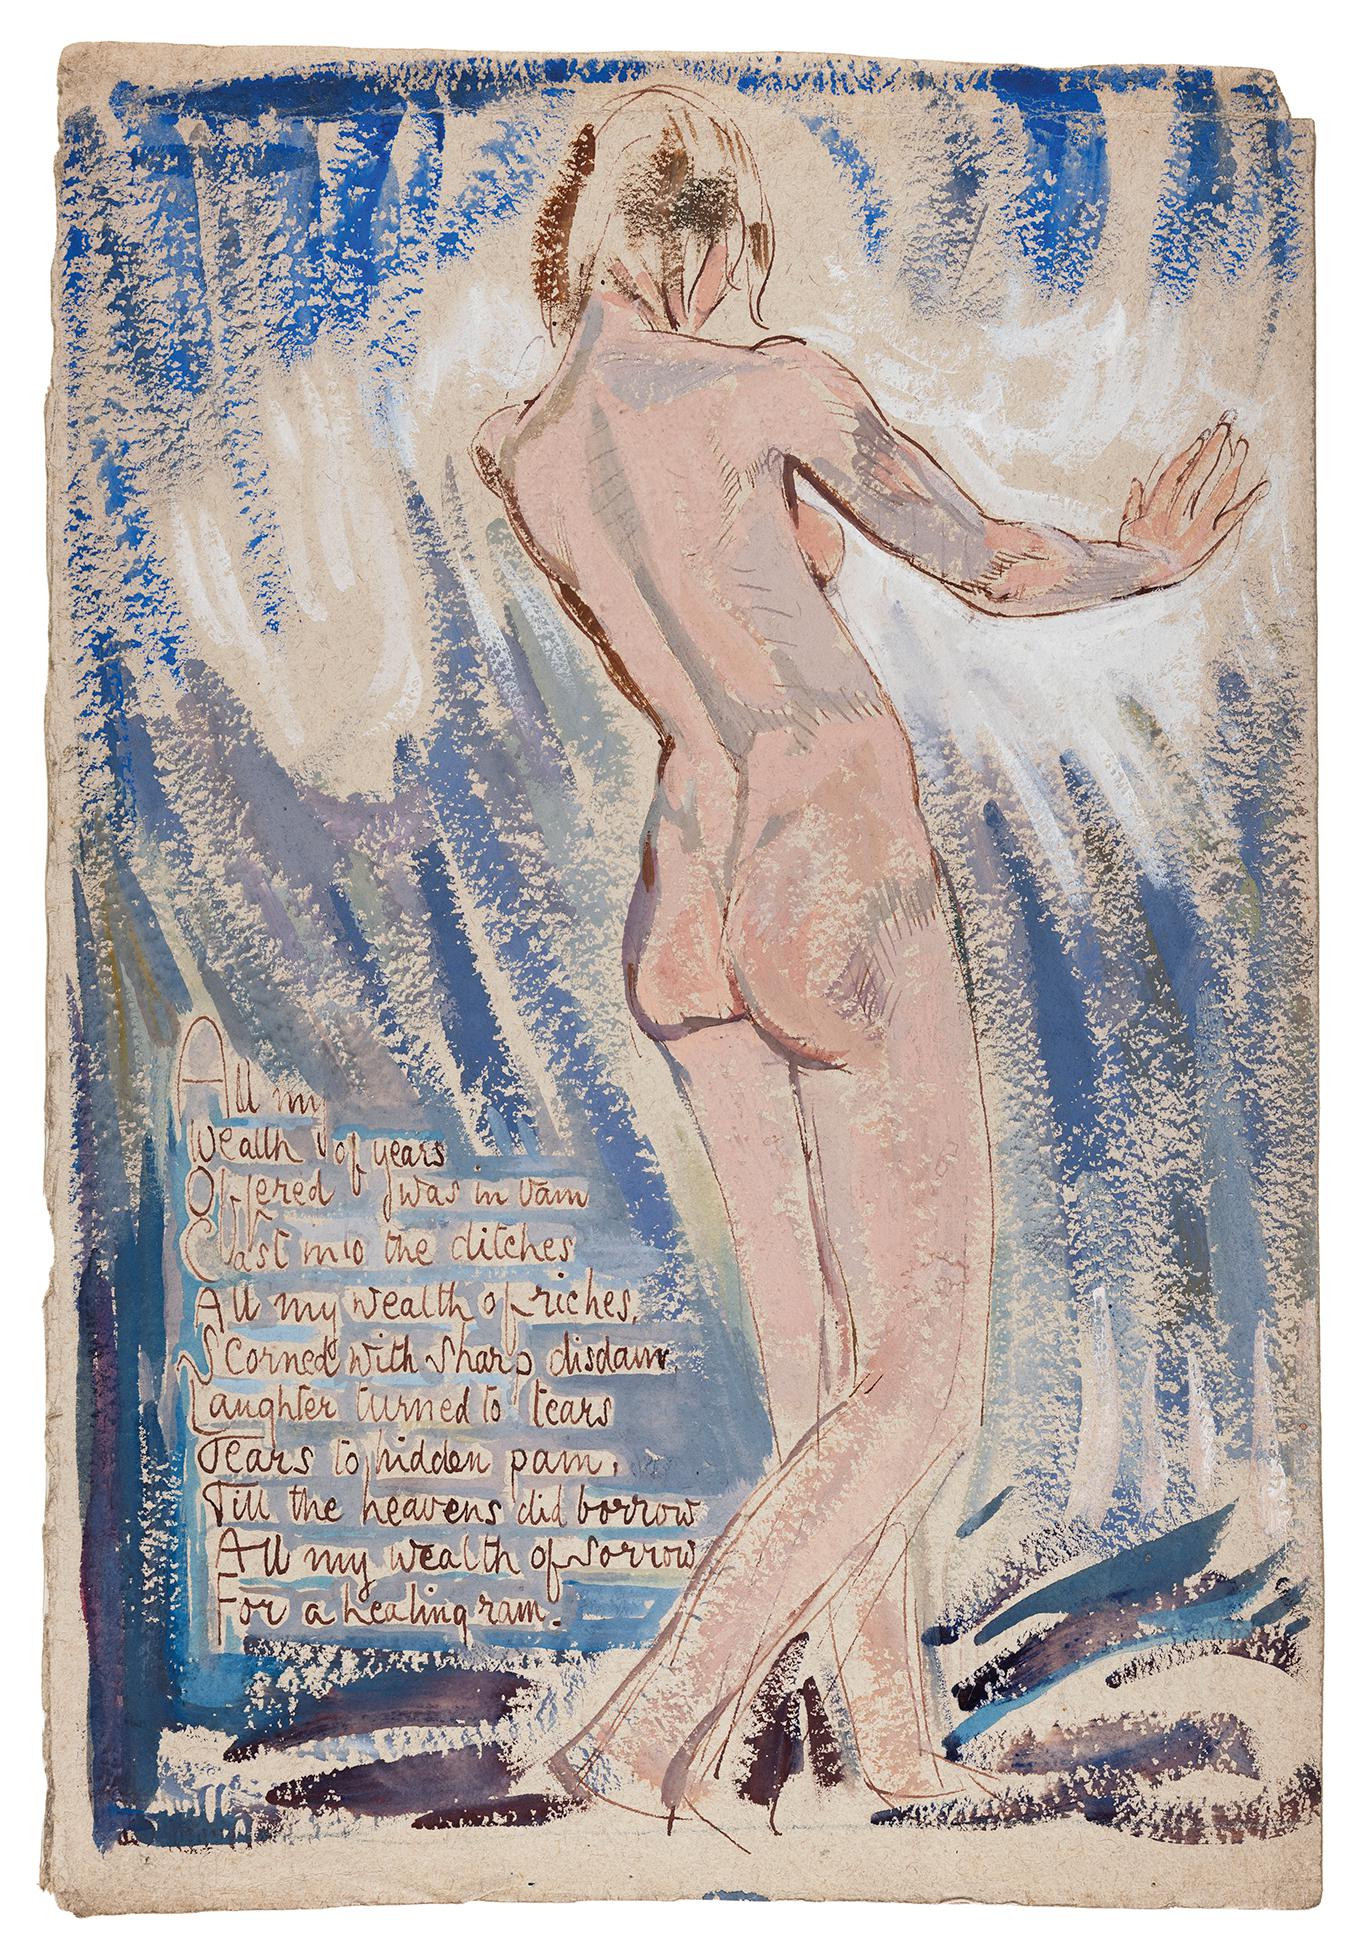 All my
Wealth of years
Offered was in vain
Cast into the ditches
All my wealth of riches,
Scorned with sharp disdain
Laughter turned to tears
Tears to hidden pain,
Till the heavens did borrow
All my wealth of sorrow
For a healing rain.